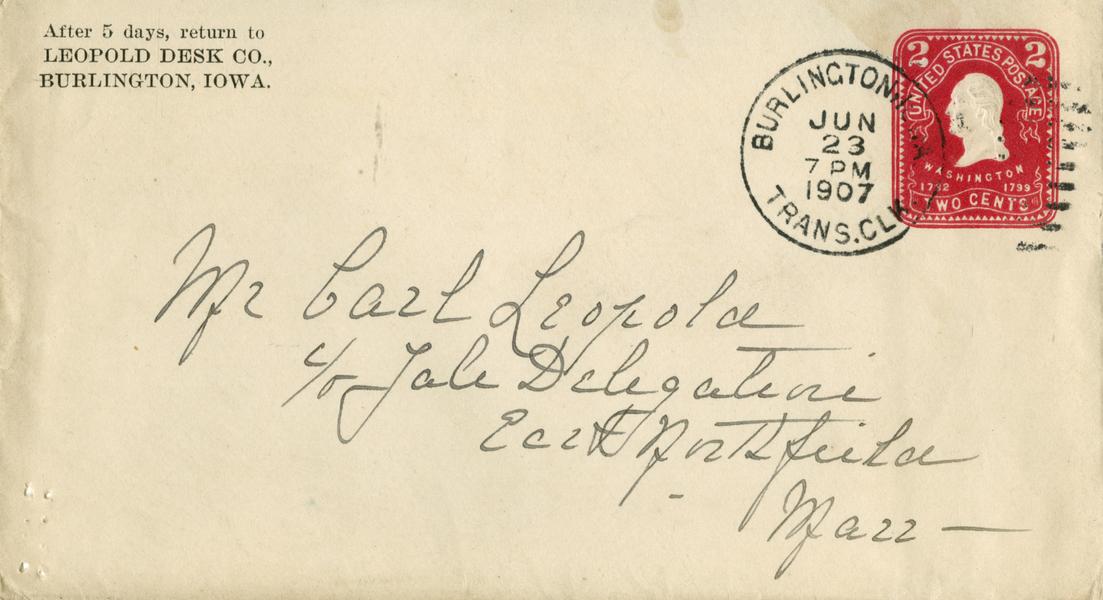 After 5 days, return to
LEOPOLD DESK CO.,
BURLINGTON, IOWA.
BURLINGTON, IOWA
JUN
23
7 PM
1907
TRANS. CLK.
2 2
UNITED STATES POSTAGE
WASHINGTON
1732 1799
TWO CENTS
Mr Carl Leopold
c/o Yale Delegation
East Northfield
Mass —